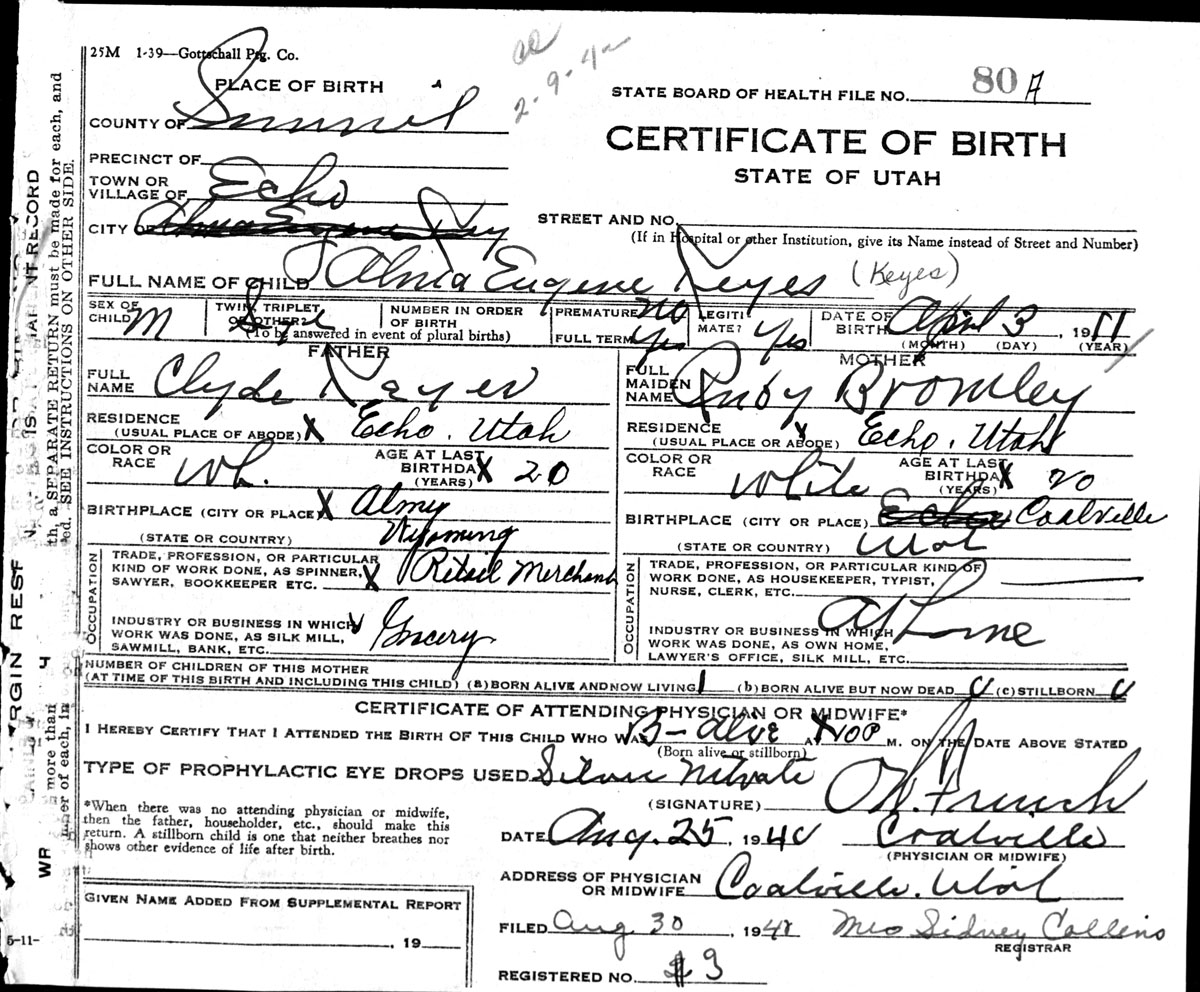 25M 1-39—Gottschall Ptg. Co.
2-9-42
PLACE OF BIRTH
STATE BOARD OF HEALTH FILE NO. 80 A
COUNTY OF Summit
CERTIFICATE OF BIRTH
STATE OF UTAH
PRECINCT OF
TOWN OR VILLAGE OF Echo
CITY OF Alma Eugene Key
STREET AND NO.
(If in Hospital or other Institution, give its Name instead of Street and Number)
FULL NAME OF CHILD Alma Eugene Keyes (Keyes)
SEX OF CHILD M
TWIN, TRIPLET OR OTHER?
NUMBER IN ORDER OF BIRTH
(To be answered in event of plural births)
PREMATURE No
FULL TERM Yes
LEGITIMATE? Yes
DATE OF BIRTH April 3, 1911
(MONTH) (DAY) (YEAR)
FATHER
FULL NAME Clyde Keyes
RESIDENCE (USUAL PLACE OF ABODE) X Echo, Utah
COLOR OR RACE Wh.
AGE AT LAST BIRTHDAY (YEARS) X 20
BIRTHPLACE (CITY OR PLACE) X Almy
(STATE OR COUNTRY) Wyoming
OCCUPATION
TRADE, PROFESSION, OR PARTICULAR KIND OF WORK DONE, AS SPINNER, SAWYER, BOOKKEEPER ETC. X Retail Merchant
INDUSTRY OR BUSINESS IN WHICH WORK WAS DONE, AS SILK MILL, SAWMILL, BANK, ETC. Grocery
MOTHER
FULL MAIDEN NAME Ruby Bromley
RESIDENCE (USUAL PLACE OR ABODE) X Echo, Utah
COLOR OR RACE White
AGE AT LAST BIRTHDAY (YEARS) X 20
BIRTHPLACE (CITY OR PLACE) Echo Coalville
(STATE OR COUNTRY) Utah
OCCUPATION
TRADE, PROFESSION, OR PARTICULAR KIND OF WORK DONE, AS HOUSEKEEPER, TYPIST, NURSE, CLERK, ETC.
INDUSTRY OR BUSINESS IN WHICH WORK WAS DONE, AS OWN HOME, LAWYER'S OFFICE, SILK MILL, ETC. At Home
NUMBER OF CHILDREN OF THIS MOTHER
(AT TIME OF THIS BIRTH AND INCLUDING THIS CHILD) (a) BORN ALIVE AND NOW LIVING 1 (b) BORN ALIVE BUT NOW DEAD 0 (c) STILLBORN 0
CERTIFICATE OF ATTENDING PHYSICIAN OR MIDWIFE*
I HEREBY CERTIFY THAT I ATTENDED THE BIRTH OF THIS CHILD WHO WAS B-Alive AT M. ON THE DATE ABOVE STATED
(Born alive or stillborn)
TYPE OF PROPHYLACTIC EYE DROPS USED Silver Nitrate
*When there was no attending physician or midwife,
then the father, householder, etc., should make this
return. A stillborn child is one that neither breathes nor
shows other evidence of life after birth.
(SIGNATURE) French
DATE Aug. 25, 1940 Coalville
(PHYSICIAN OR MIDWIFE)
ADDRESS OF PHYSICIAN OR MIDWIFE Coalville, Utah
GIVEN NAME ADDED FROM SUPPLEMENTAL REPORT
, 19
FILED Aug 30, 1941 Mrs Sidney Collins
REGISTRAR
REGISTERED NO. 3
th, a SEPARATE RETURN must be made for each, and
SEE INSTRUCTIONS ON OTHER SIDE.